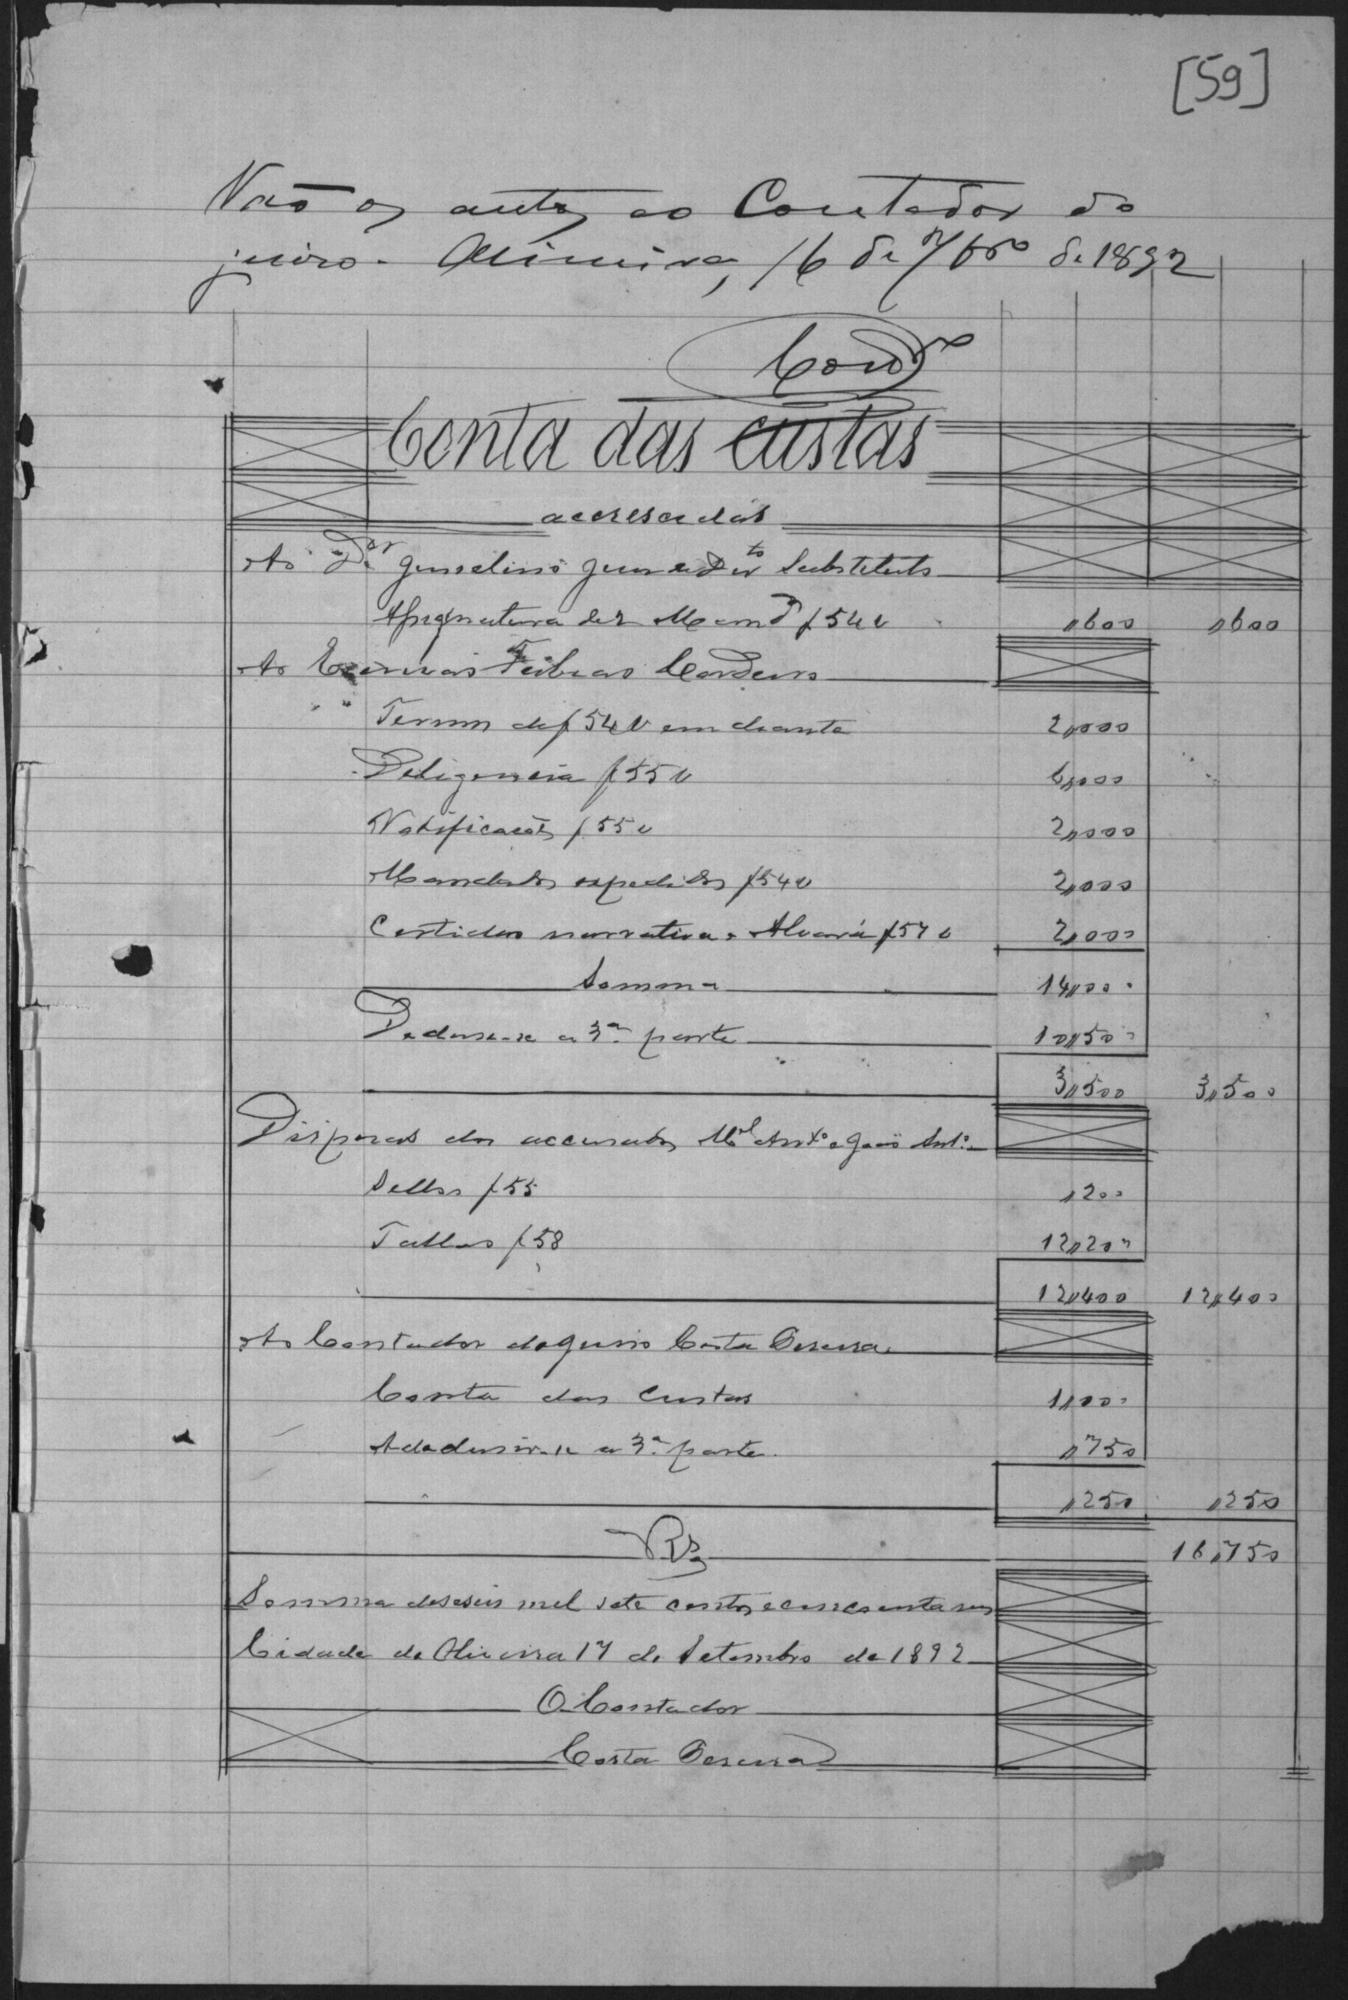 [59]
Vão os autos ao Contador do
juiso. Oliveira, 16 de 7bro de 1892
Conta das custas
accrescidas
Ao Dr. Juiz de Dirto Substituto
Assignatura de 2 Mand. f 54 v ,,600 ,,600
Ao Escrivão Febias Cordeiro
Termos de f 54 v em diante 2,,000
Deligencia f 55 v 6,,000
Notificações f 55 v 2,,000
Mandados expedidos f 54 v 2,,000
Certidão narrativa e Alvará f 57 v 2,,000
Somma 14,,000
Dedusa-se a 3a parte 10,,500
3,,500 3,,500
Dispesas dos accusados Ml Anto e João Anto
Sellos f 55 ,,200
Tallão f 58 12,,200
12,,400 12,,400
Ao Contador do Juiso Costa Pereira
Conta das custas 1,,000
A dedusir-se a 3a parte ,,750
,,250 ,,250
Rs 16,,750
Somma deseseis mil sete centos e cincoenta reis
Cidade de Oliveira 17 de Setembro de 1892
O Contador
Costa Pereira